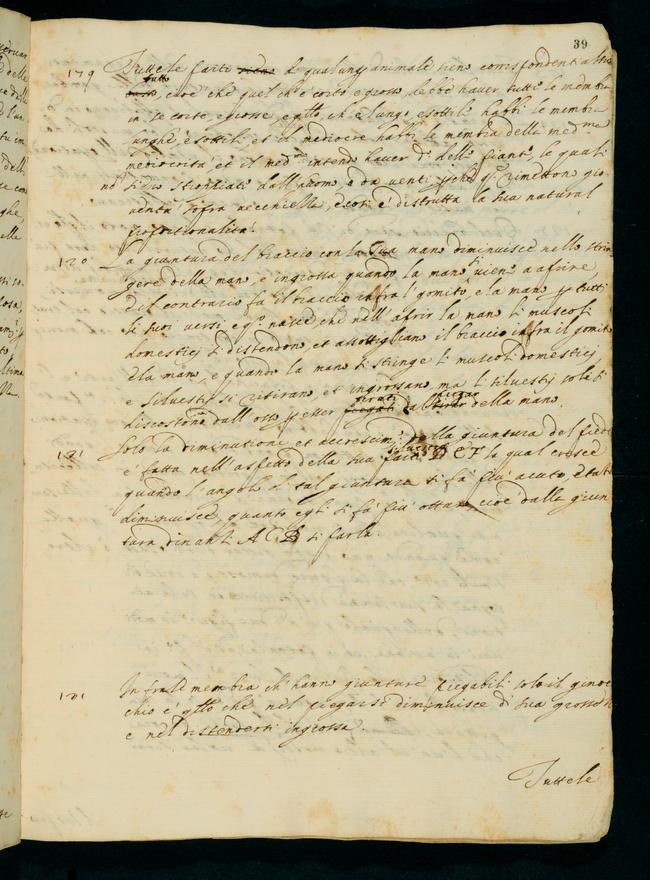 39
179 Tutte le parti sieno di qualunq animale sieno correspondenti al suo
tutto, cioè che quel ch'è corto e grosso debbe haver tutti le membra
in se corte, e grosse, e qllo, ch'è lungo, e sottile habbi le membra
lunghe, e sottili, et il mediocre habbi le membra della med.me
mediocrità, et il med.mo intendo haver d.° delle piante, le quali
no' sieno stroppiati dall'huomo, o da venti, pche qte rimettono gio-
ventù sopra vecchiezza, e così è distrutta la sua natural
proportionalità.
120 La giuntura del braccio con la sua mano diminuisce nello strin-
gere della mano, e ingrossa quando la mano si viene a aprire,
e il contrario fa il braccio infra'l gomito, e la mano p tutti
li suoi versi, e qo nasce, che nell'aprir la mano li muscoli
domestici si distendon, et assottigliano il braccio infra il gomito
e la mano, e quando la mano si stringe li muscoli domestici
e silvestri si ritirano, et ingrossano, ma li silvestri solo si
discostono dall'osso p esser tirati dal piegar della mano.
121 Solo la diminutione et accrescim.to della giuntura del piede
è fatta nell'aspetto della sua parte silvestre D E F la qual cresce
quando l'angolo di tal giuntura si fa più acuto, e tato
diminuisce, quanto egli si fa più ottuso cioè dalla giun
tura dinanti A C B si parla.
121 Infra le membra ch'hanno giunture piegabili solo il ginoc
chio è qllo che nel piegarsi diminuisce di sua grossezza
e nel distendersi ingrossa.
Tutte le